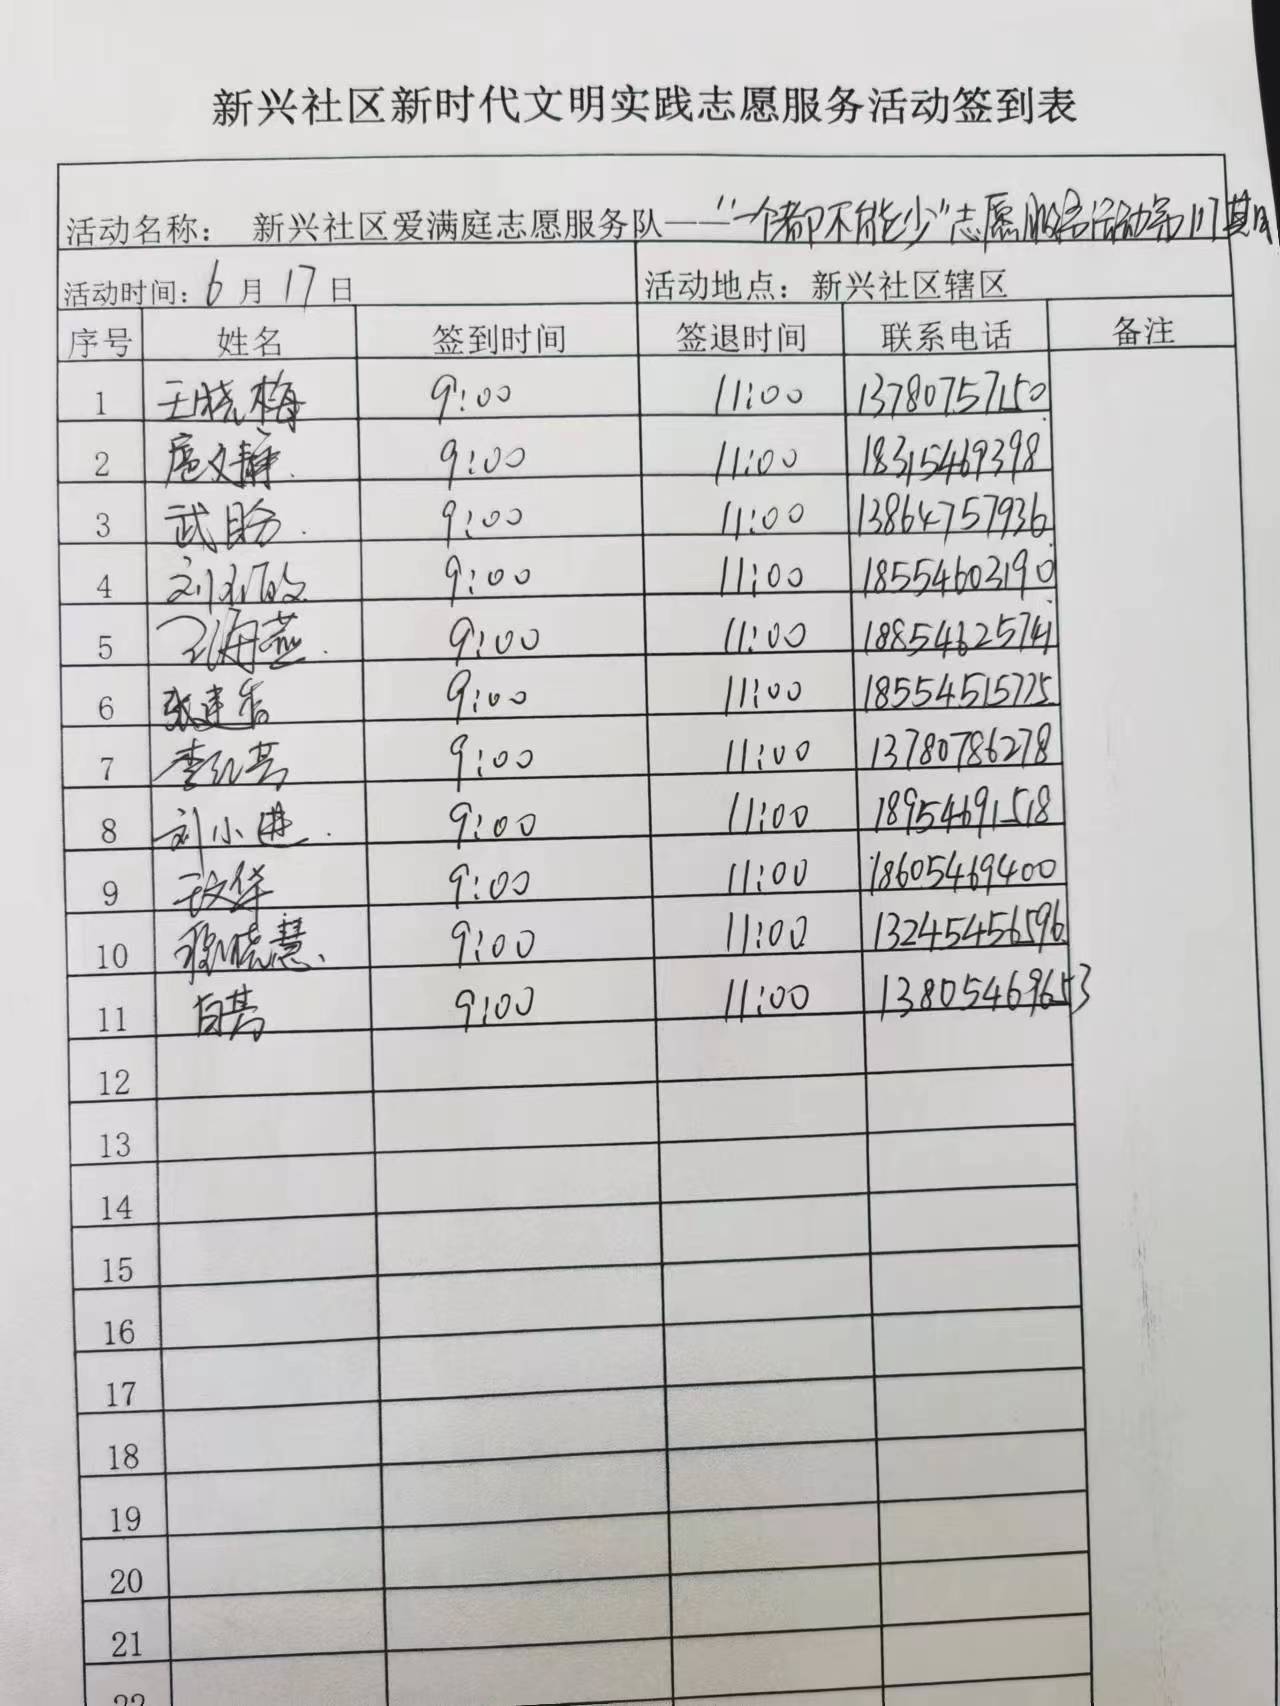 新兴社区新时代文明实践志愿服务活动签到表
活动名称： 新兴社区爱满庭志愿服务队——“一个都不能少”志愿服务活动第117期
活动时间：6月17日 活动地点：新兴社区辖区
序号 姓名 签到时间 签退时间 联系电话 备注
1 王晓梅 9:00 11:00 13780757150
2 文静 9:00 11:00 18315469398
3 武盼 9:00 11:00 13864757936
4 刘 9:00 11:00 18554603190
5 王海燕 9:00 11:00 18854625741
6 张建 9:00 11:00 18554515775
7 李红 9:00 11:00 13780786278
8 刘小进 9:00 11:00 18954691518
9 华 9:00 11:00 18605469400
10 晓慧 9:00 11:00 13245456596
11 9:00 11:00 13805469653
12
13
14
15
16
17
18
19
20
21
22